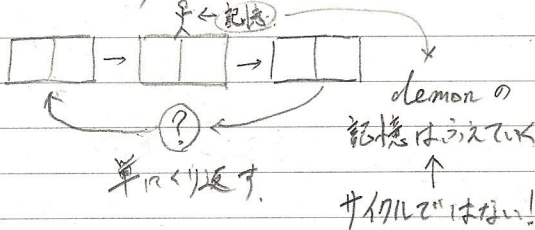 記憶
?
単にくり返す.
demonの
記憶はふえていく
サイクルではない!